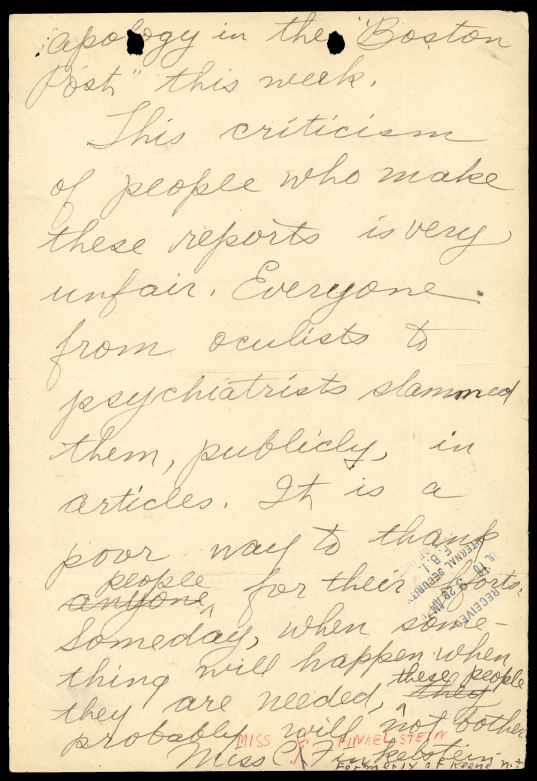 apology in the "Boston
Post" this week.
This criticism
of people who make
these reports is very
unfair. Everyone
from oculists to
psychiatrists slammed
them, publicly, in
articles. It is a
poor way to thank
people
anyone for their efforts.
Someday, when some-
thing will happen when
these people
they are needed, they
probably will not bother
MISS C. FINKELSTEIN
Miss C. Finkelstein
Formerly of Keene N.H.
RECEIVED
9 28 AM
F. B. I.
INTERNAL SECURITY